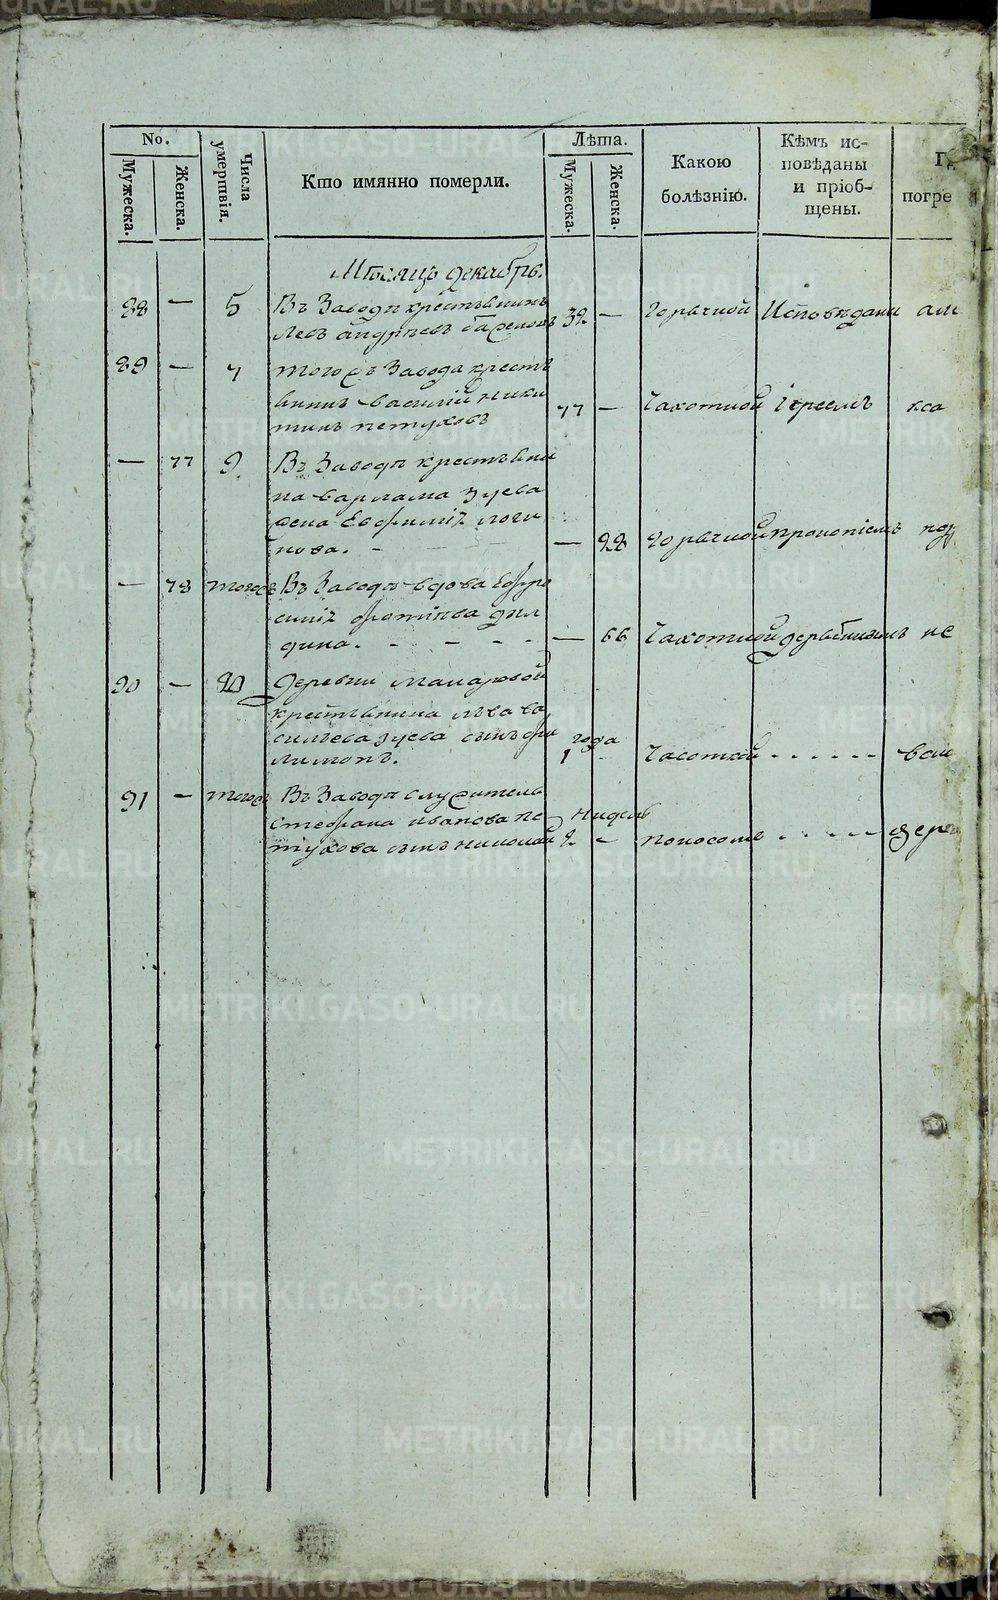 No.
Мужеска.
Женска.
Числа умершвія.
Кто имянно померли.
Лѣта.
Мужеска.
Женска.
Какою болѣзнію.
Кѣмъ ис-
повѣданы
и пріоб-
щены.
погре
Мѣсяцъ декабрь.
88 — 5 Въ Заводѣ крестьянинъ
Левъ андрѣевъ 32 — Горячкой Исповѣданы
89 — 7 тогожъ Завода кресть
янинъ василій ники
тинъ петуховъ 77 — Чахоткой іереемъ кса
— 77 9 Въ Заводѣ крестьяни
на варлама зуева
жена Евфимія логи
нова. — 22 Горячкой прокопіемъ
— 78 тогожъ Въ Заводѣ вдова Ефро
синія фотіива дил
дина. — 66 Чахоткой дерябинымъ не
90 — 20 деревни макаровой
крестьянина льва ва
сильева зуева сынъ фи
лимонъ. 1 года Чесоткой
91 — тогожъ Въ Заводѣ служитель
стефана иванова пе
тухова сынъ николай 2 нидель — поносомъ
METRIKI.GASO-URAL.RU